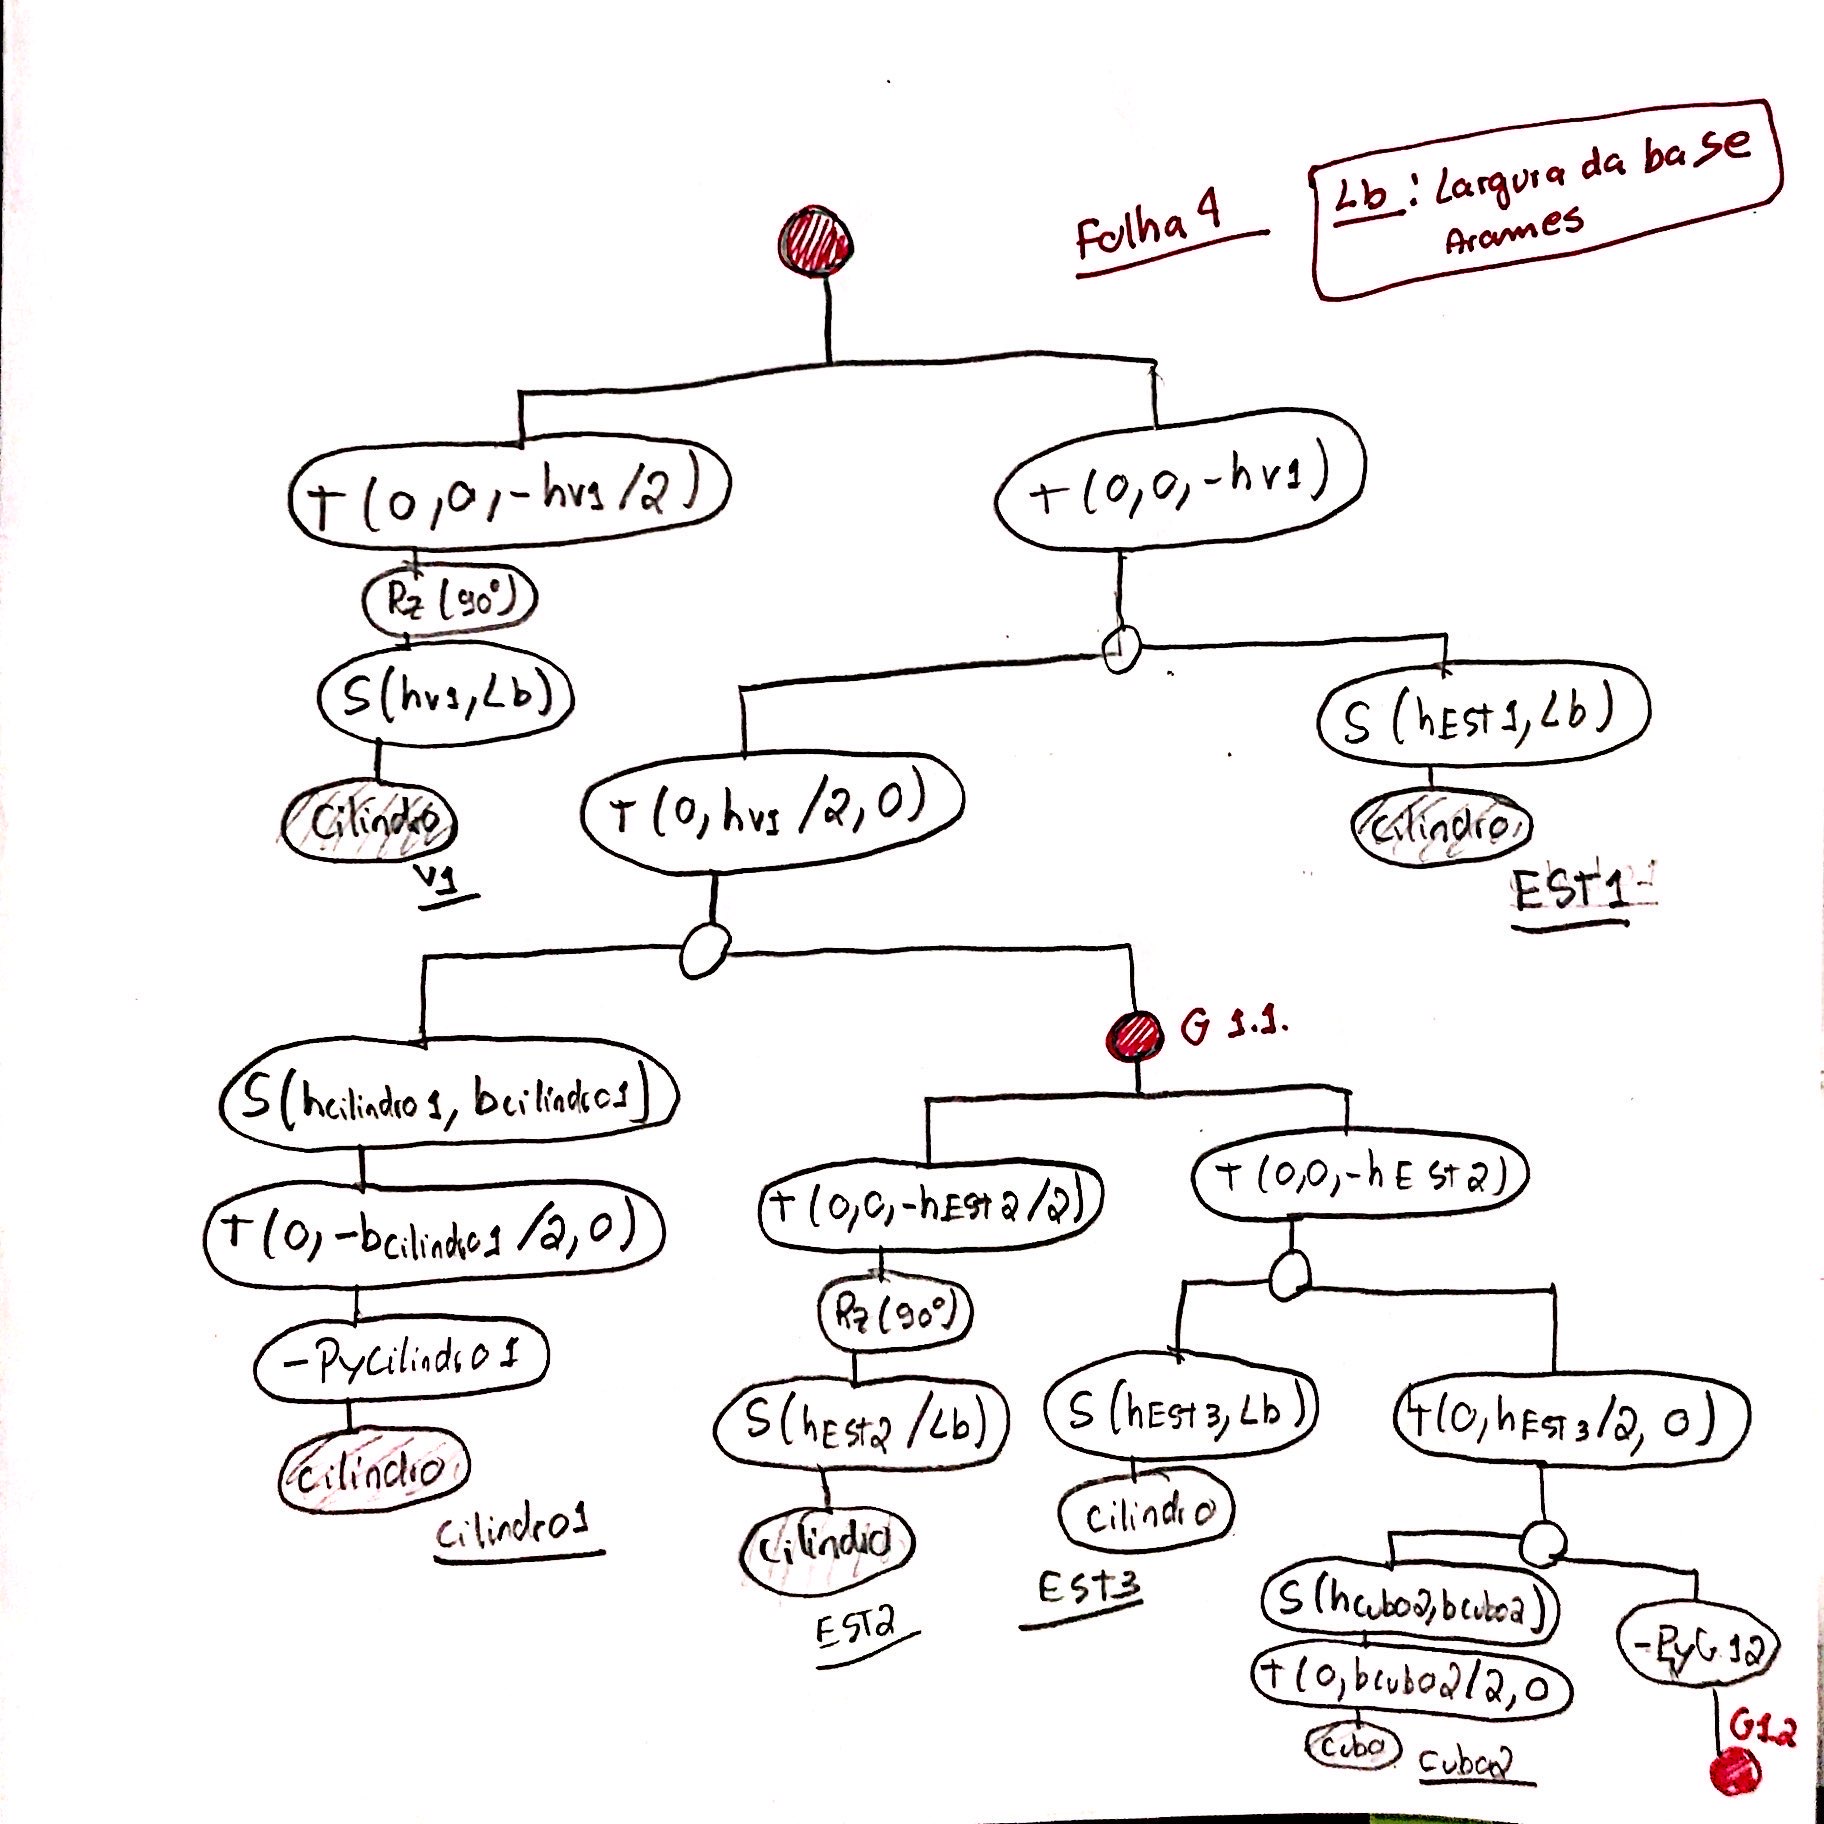 Folha 4
Lb : Largura da base
Arames
T(0,0,-hv1/2)
T(0,0,-hv1)
Rz(90°)
S(hv1,Lb)
Cilindro
V1
T(0,hv1/2,0)
S(hEst1,Lb)
Cilindro
EST1
G 1.1.
S(hcilindro1, bcilindro1)
T(0,-bcilindro1/2,0)
-Pycilindro1
cilindro
cilindro1
T(0,0,-hEst2/2)
T(0,0,-hEst2)
Rz(90°)
S(hEst2/Lb)
cilindro
EST2
S(hEst3,Lb)
cilindro
EST3
T(0,hEst3/2,0)
S(hcubo2,bcubo2)
T(0,bcubo2/2,0
cubo
cubo2
-PyG12
G1.2